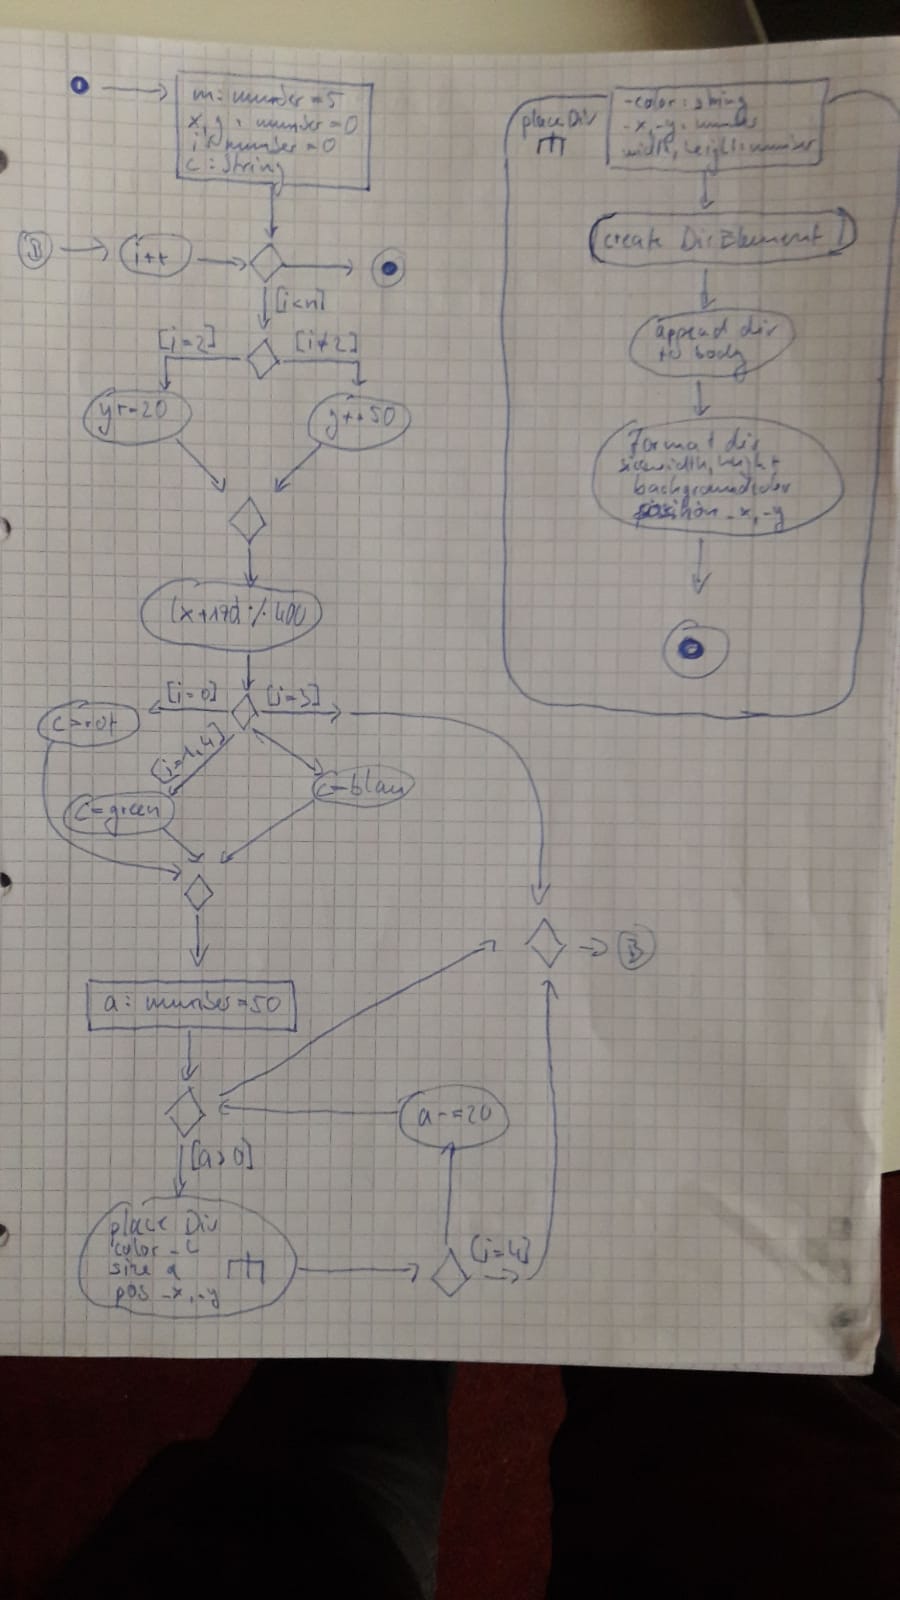 n: number = 5
x, y: number = 0
i: number = 0
c: String
B
i++
[i<n]
[i=2]
[i≠2]
y+=20
y+=50
(x+170)%400
[i=0]
[i=3]
[i=1,4]
c=rot
c=green
c=blau
a: number=50
B
[a>0]
a-=20
place Div
color _c
size a
pos _x,_y
[i=4]
placeDiv
_color: string
_x, _y: number
width, height: number
create DivElement
append div
to body
Format div
width, height
backgroundcolor
position _x, _y